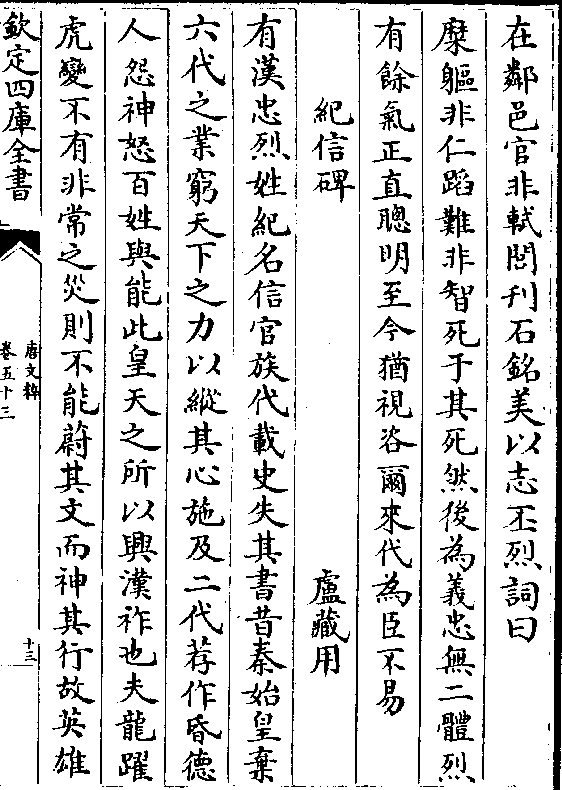 在鄰邑官非軾閭刋石銘美以志丕烈詞曰
糜軀非仁蹈難非智死于其死然後為義忠無二體烈
有餘氣正直聰明至今猶視咨爾來代為臣不易
紀信碑　盧藏用
有漢忠烈姓紀名信官族代載史失其書昔秦始皇棄
六代之業窮天下之力以縱其心施及二代荐作昏德
人怨神怒百姓與能此皇天之所以興漢祚也夫龍躍
虎變不有非常之災則不能蔚其文而神其行故英雄
欽定四庫全書
唐文粹
卷五十三
十三